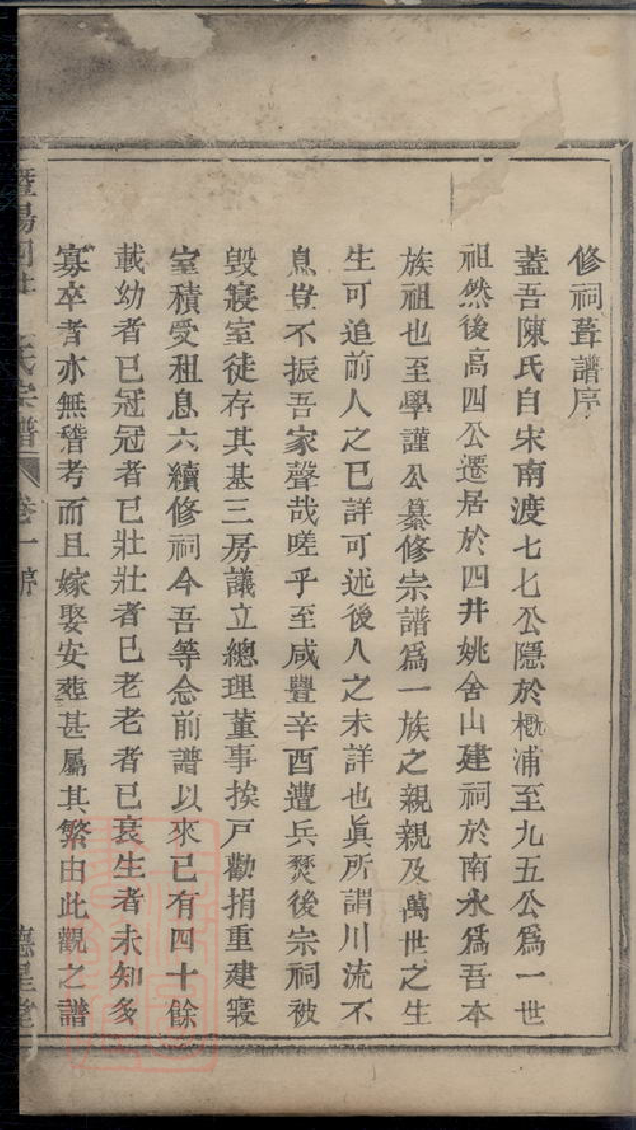 修祠葺譜序
蓋吾陳氏自宋南渡七七公隱於概浦至九五公爲一世
祖然後高四公遷居於四井姚舍山建祠於南永爲吾本
族祖也至學謹公纂修宗譜爲一族之親親及萬世之生
生可追前人之已詳可述後人之未詳也眞所謂川流不
息豈不振吾家聲哉嗟乎至咸豐辛酉遭兵燹後宗祠被
毀寢室徒存其基三房議立總理董事挨戸勸捐重建寢
室積受租息六續修祠今吾等念前譜以來已有四十餘
載幼者已冠冠者已壯壯者已老老者已衰生者未知多
寡卒者亦無稽考而且嫁娶安葬甚屬其繁由此觀之譜
氏宗譜 卷一 序